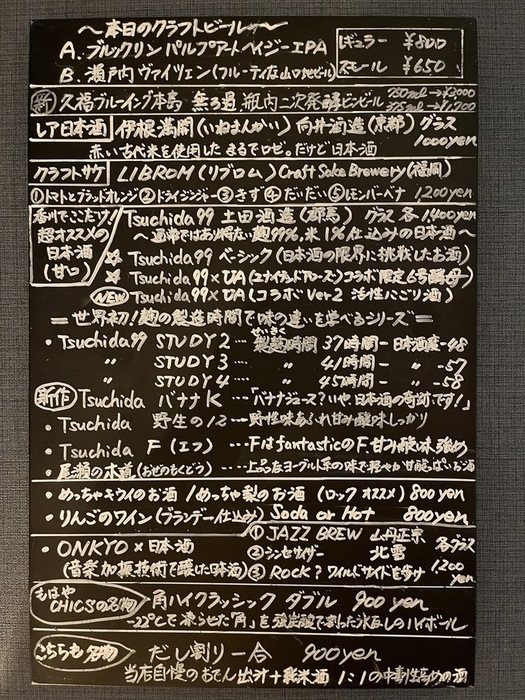 〜本日のクラフトビール〜
A. ブルックリン パルプアート ヘイジーIPA
B. 瀬戸内 ヴァイツェン(フルーティな山口地ビール)
レギュラー ¥800
スモール ¥650
新 久福ブルーイング本島 無ろ過 瓶内二次発酵ビンビール 750ml→¥3000
375ml→¥1,700
レア日本酒 伊根満開(いねまんかい) 向井酒造(京都) グラス
1000yen
赤い古代米を使用した まるでロゼ。だけど日本酒
クラフトサケ LIBROM(リブロム) Craft Sake Brewery(福岡)
①トマトとブラッドオレンジ ②ドライジンジャー ③きず ④だいだい ⑤レモンバーベナ 1200yen
香川でここだけ!
超オススメの
日本酒
(甘口)
Tsuchida 99 土田酒造(群馬) グラス 各1,400yen
〜通常ではあり得ない麹99%、米1%仕込みの日本酒〜
☆ Tsuchida 99 ベーシック(日本酒の限界に挑戦したお酒)
☆ Tsuchida 99×UA(ユナイテッドアローズ)コラボ限定6号酵母)
NEW Tsuchida 99×UA(コラボ Ver2 活性にごり酒)
=世界初!麹の製造時間で味の違いを学べるシリーズ=
・Tsuchida99 STUDY 2 … 製麹時間 37時間 - 日本酒度-48
せいきく
〃 STUDY 3 … 〃 41時間 - 〃 -57
〃 STUDY 4 … 〃 45時間 - 〃 -58
新作 Tsuchida バナナK …「バナナジュース?いや日本酒の奇跡です!」
・Tsuchida 野生の12 … 野性味あふれ甘み酸味しっかり
・Tsuchida F(エフ) … FはfantasticのF. 甘み酸味強め
・尾瀬の木道(おぜのもくどう) … 上品なヨーグルト系の味で軽やか甘酸っぱいお酒
・めっちゃキウイのお酒 / めっちゃ梨のお酒 (ロック オススメ) 800yen
・りんごのワイン(ブランデー仕込み) Soda or Hot 800yen
・ONKYO×日本酒
(音楽加振技術で醸した日本酒)
①JAZZ BREW 山丹正宗
②シンセサイザー 北雪
③ROCK? ワイルドサイドを歩け
各グラス
1200
yen
もはや
CHICSの名物 角ハイクラッシック ダブル 900yen
-22℃で凍らせた「角」を強炭酸で割った氷なしのハイボール
こちらも名物 だし割り一合 900yen
当店自慢のおでん出汁+純米酒 1:1の中毒性高めの酒